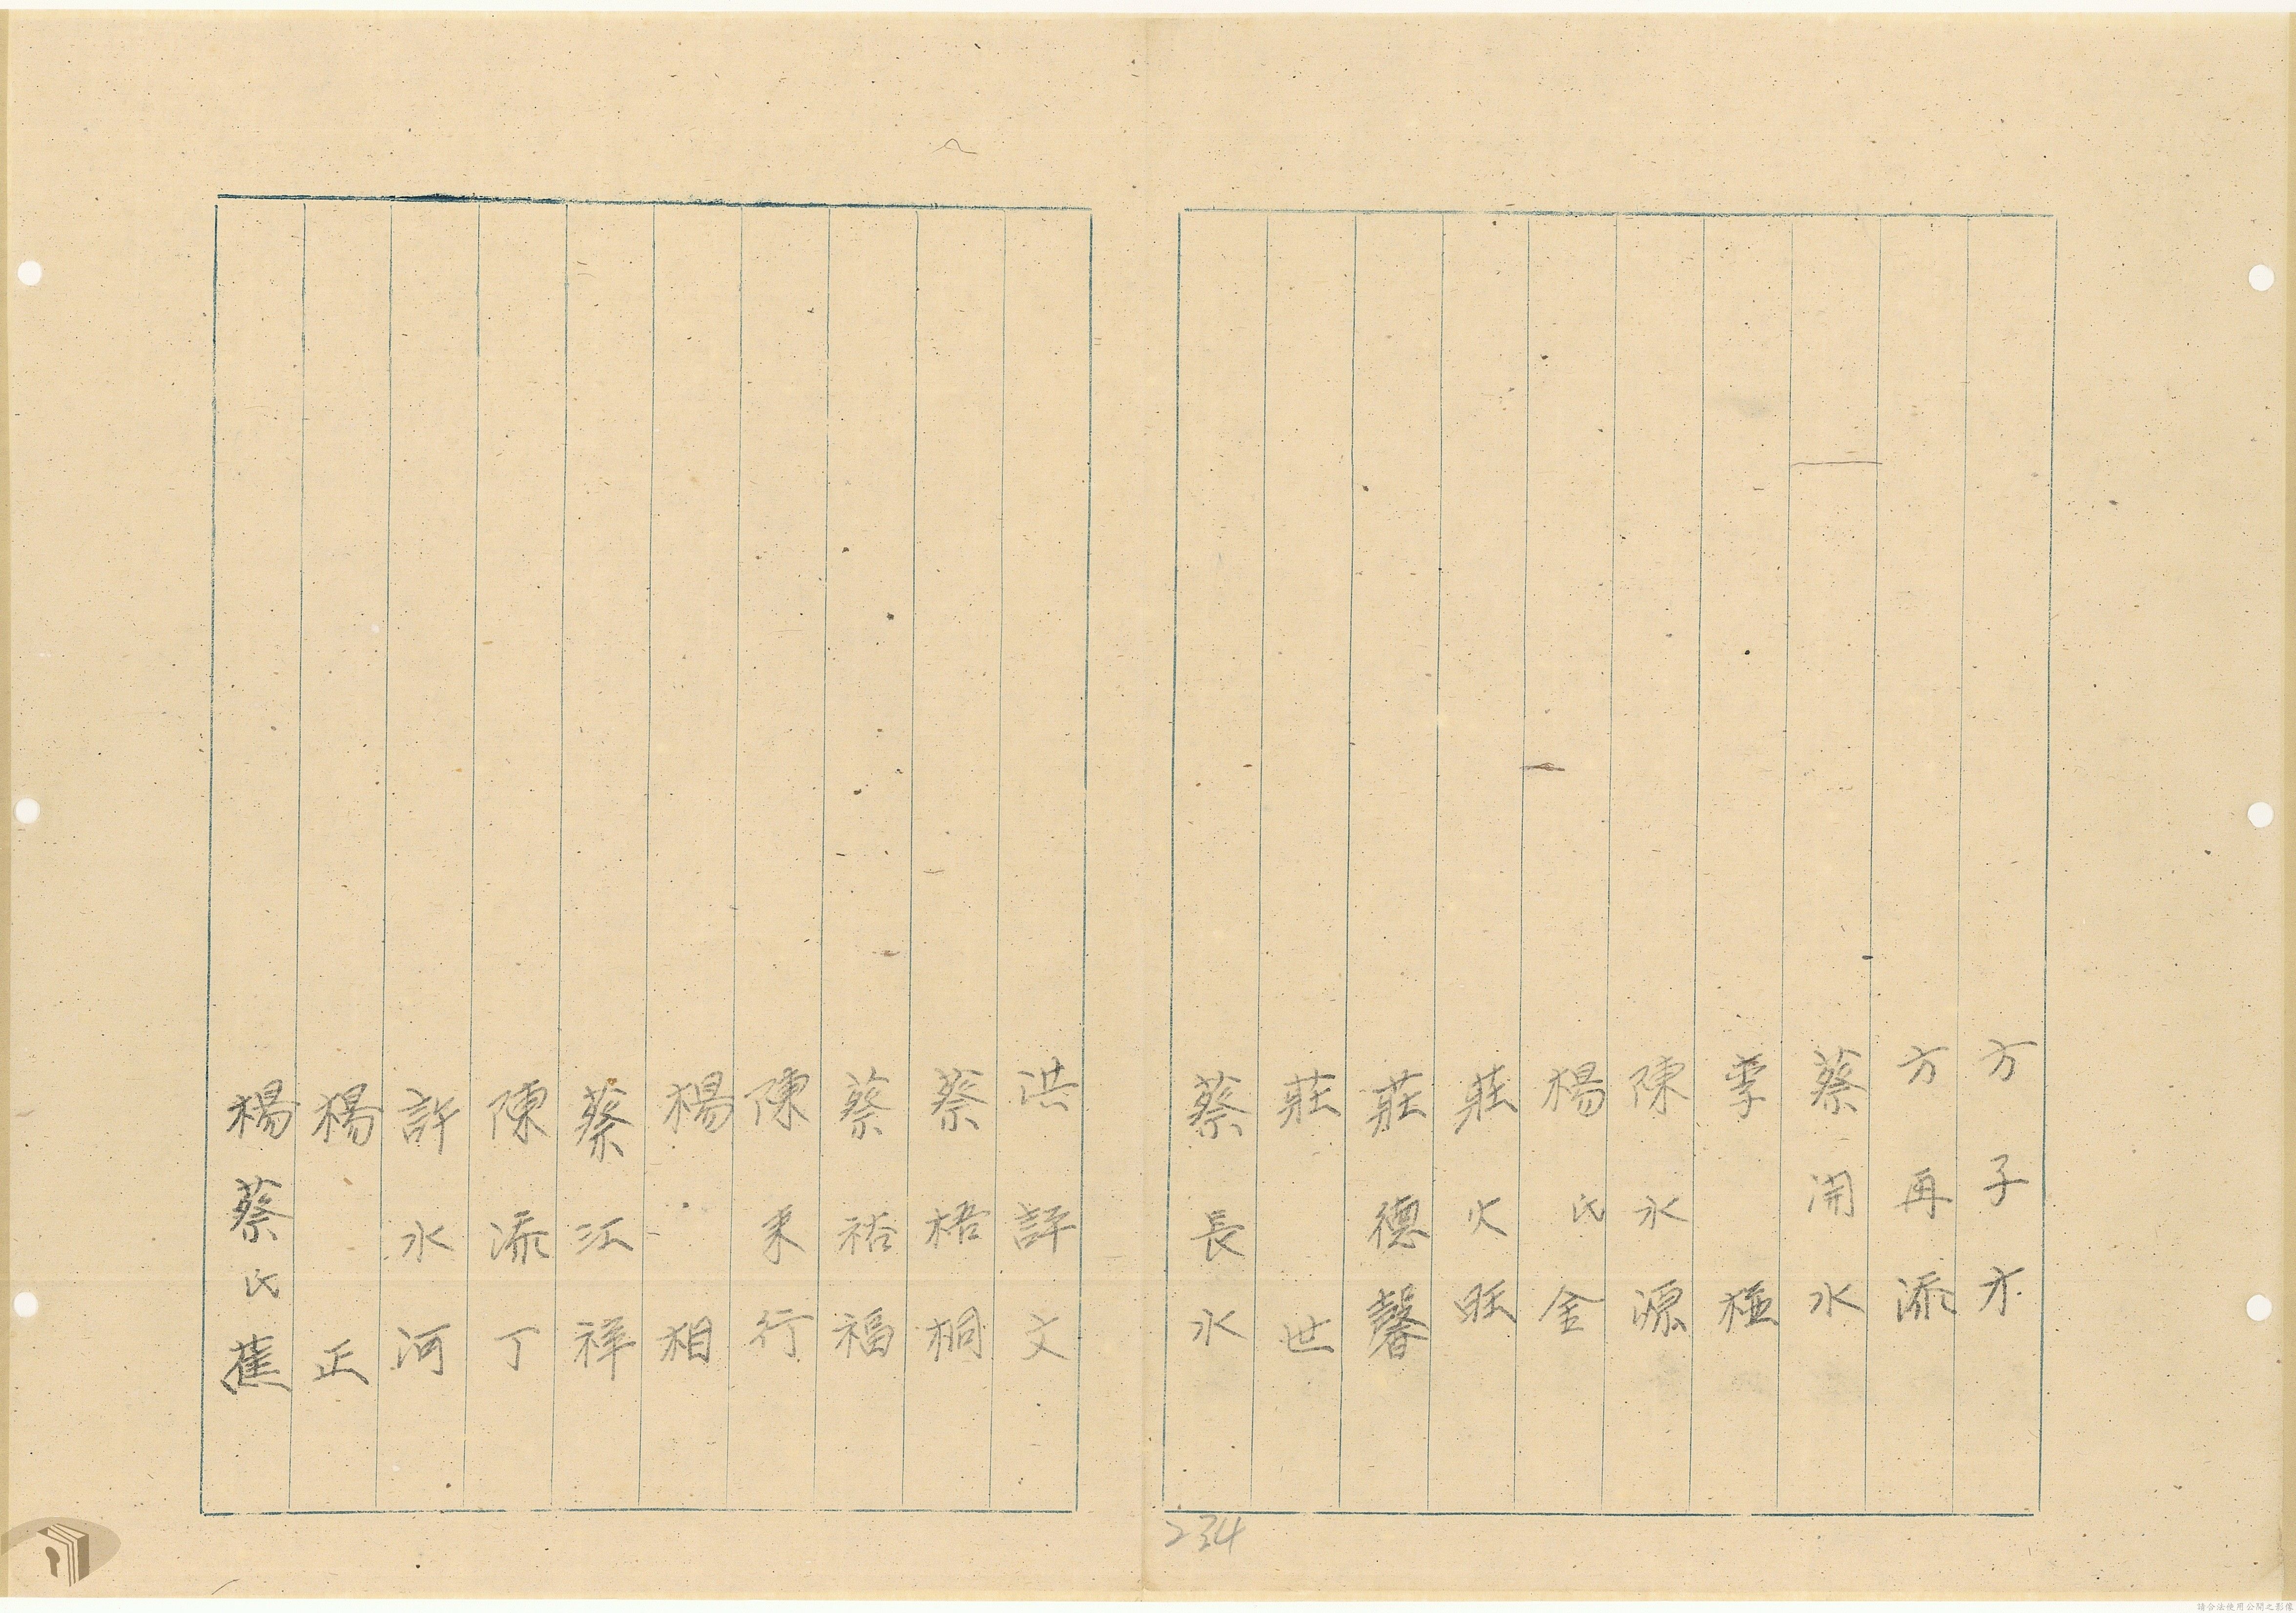 方子才
方再添
蔡開水
李極
陳永源
楊氏金
莊火旺
莊德馨
莊世
蔡長水
洪評文
蔡梧桐
蔡裕福
陳來行
楊相
蔡江祥
陳添丁
許水河
楊正
楊蔡氏蕉
234
請合法使用公開之影像